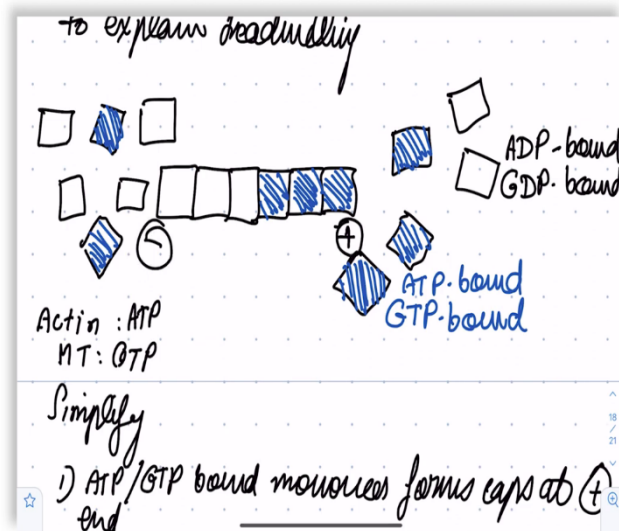 to explain treadmilling
ADP-bound
GDP-bound
⊖
⊕
ATP-bound
GTP-bound
Actin : ATP
MT : GTP
Simplify
1) ATP/GTP bound monomers forms caps at ⊕
end
18
/
21